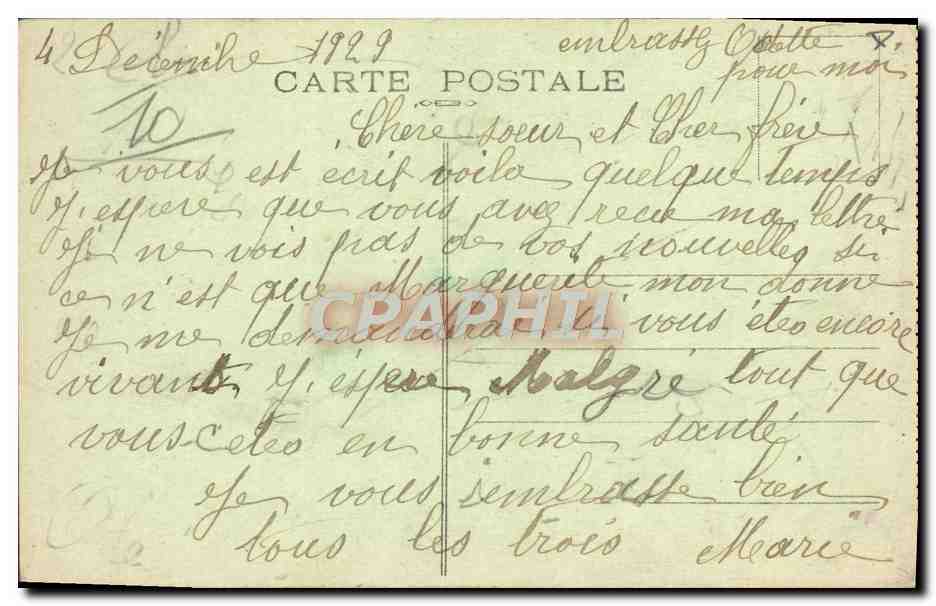 4 Décembre 1929
embrassez Odette
pour moi
CARTE POSTALE
10
Chere soeur et Cher frère
Je vous est écrit voila quelque temps
J'espere que vous avez recu ma lettre
Je ne vois pas de vos nouvelles si
ce n'est que Marguerite mon donne
Je me demandrai si vous êtes encore
vivant J'espere Malgré tout que
vous etes en bonne santé
Je vous embrasse bien
tous les trois Marie
CPAPHIL